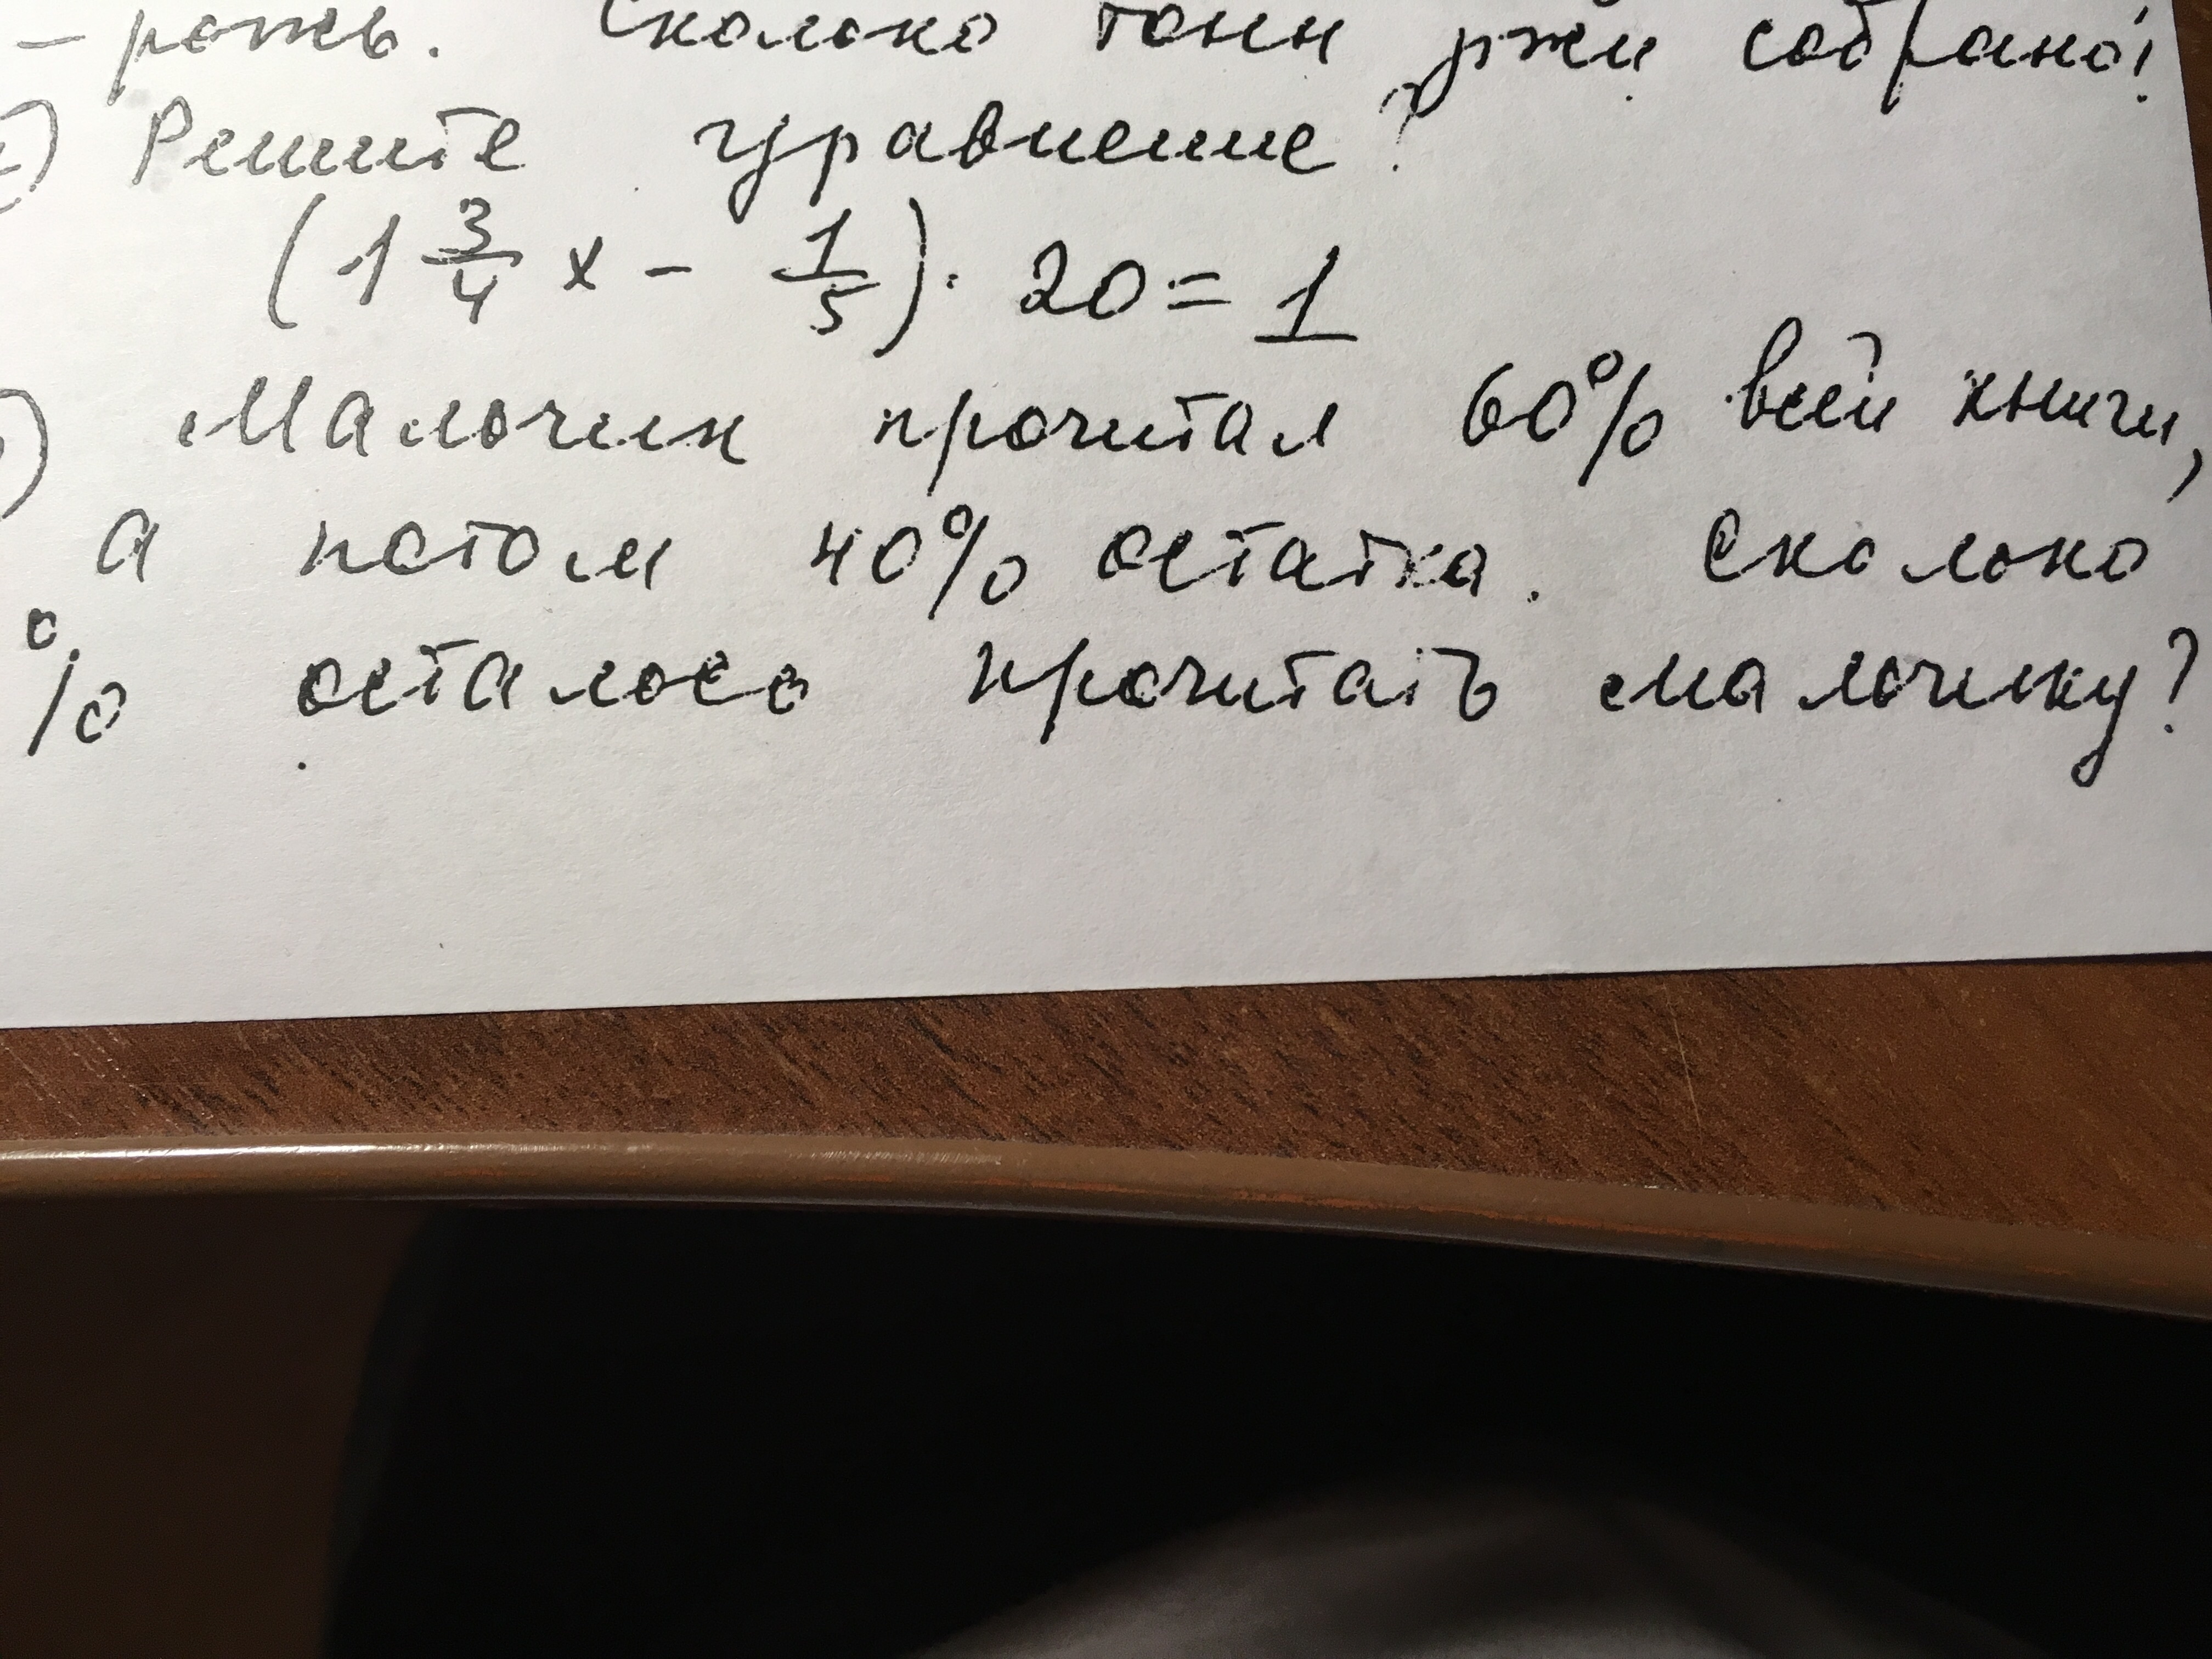 - рожь. Сколько тонн ржи собрано?
) Решите уравнение?
(1 3/4 x - 1/5) · 20 = 1
) Мальчик прочитал 60% всей книги,
а потом 40% остатка. Сколько
% осталось прочитать мальчику?